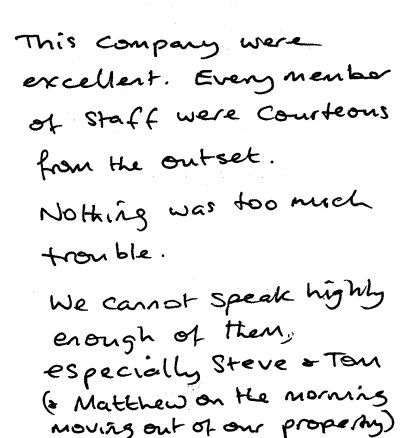 This company were
excellent. Every member
of staff were courteous
from the outset.
Nothing was too much
trouble.
We cannot speak highly
enough of them,
especially Steve & Tom
(& Matthew on the morning
moving out of our property)